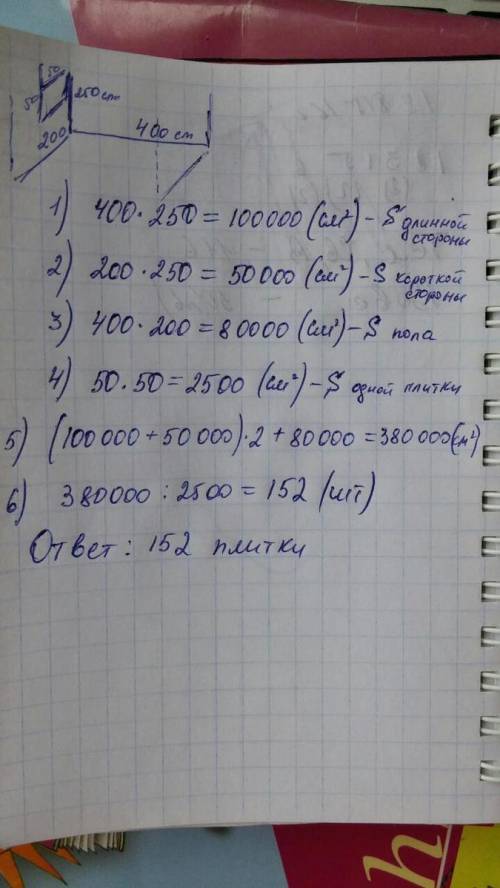 50
50
250 cm
200
400 cm
1) 400 · 250 = 100000 (см²) – S длинной стороны
2) 200 · 250 = 50000 (см²) – S короткой стороны
3) 400 · 200 = 80000 (см²) – S пола
4) 50 · 50 = 2500 (см²) – S одной плитки
5) (100 000 + 50 000) · 2 + 80000 = 380 000 (см²)
6) 380000 : 2500 = 152 (шт)
Ответ: 152 плитки
h